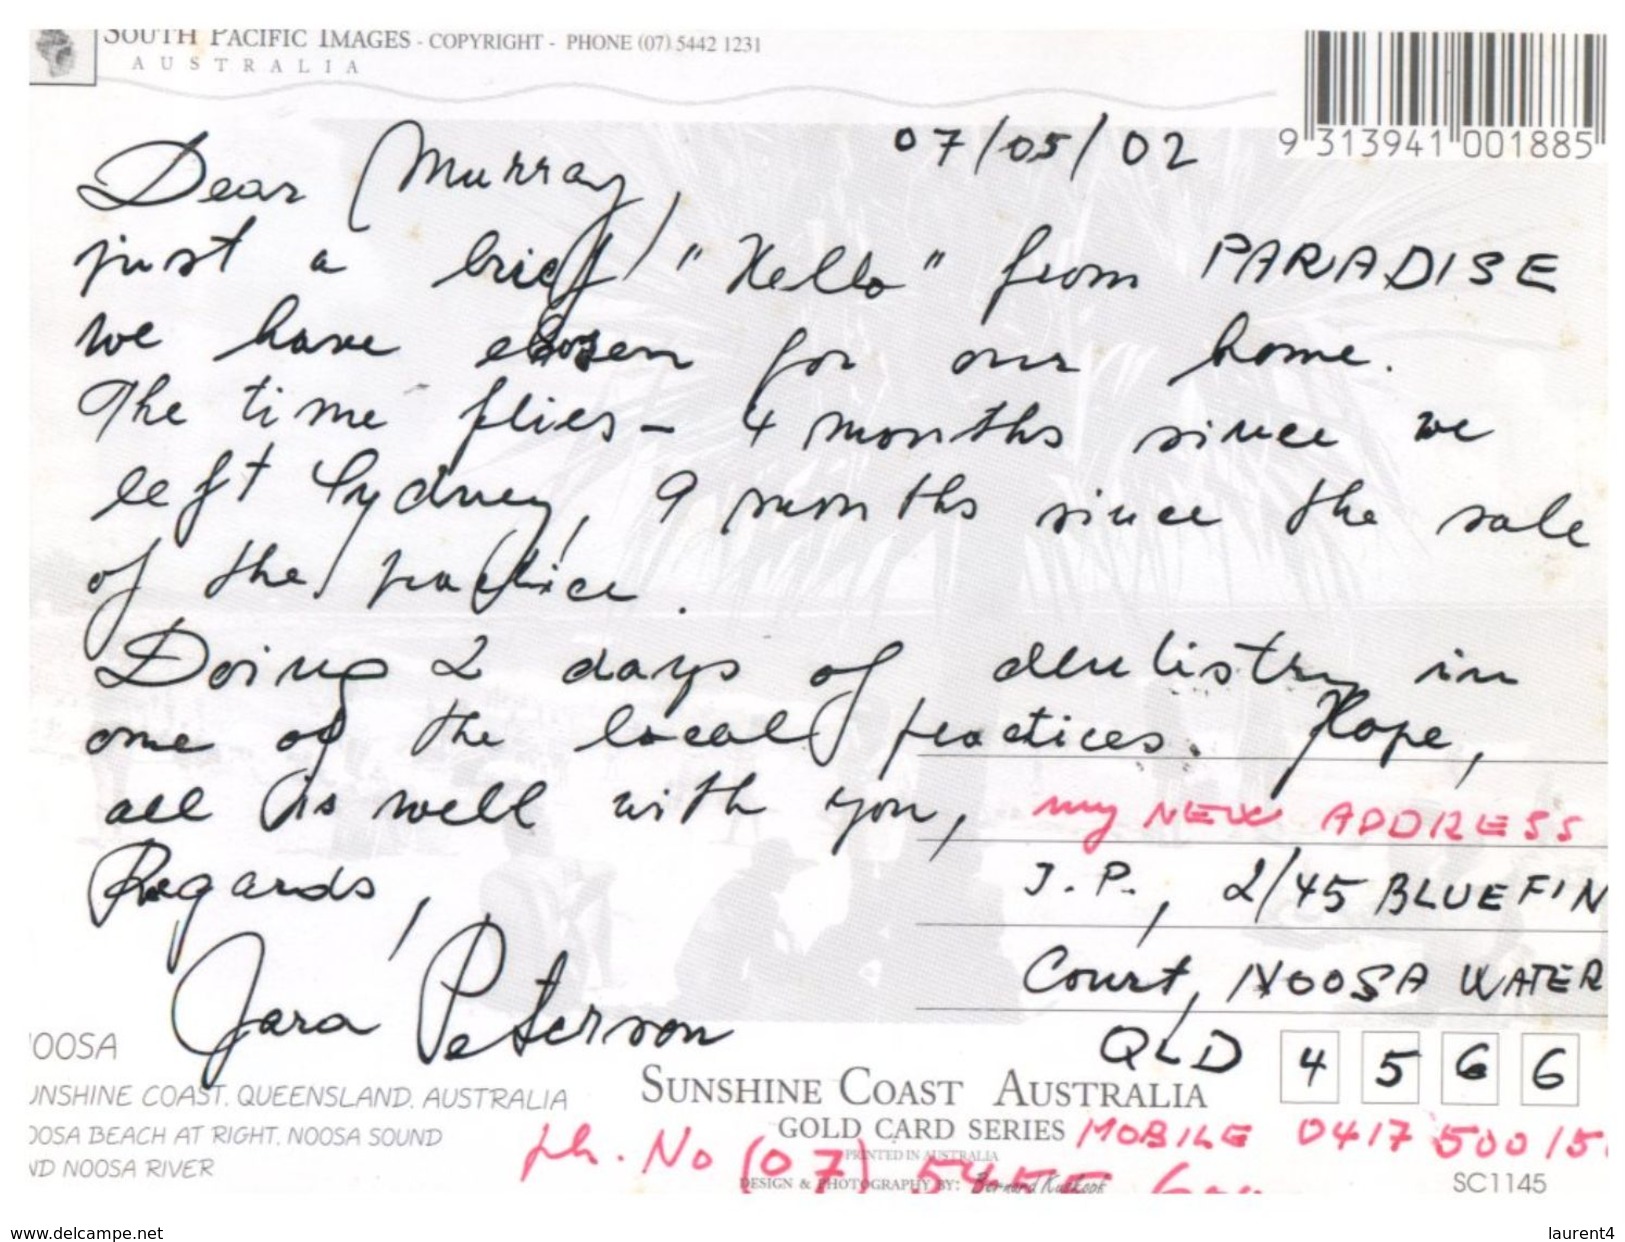 SOUTH PACIFIC IMAGES - COPYRIGHT - PHONE (07) 5442 1231
AUSTRALIA
9 313941 001885
07/05/02
Dear Murray,
just a brief "Hello" from PARADISE
we have chosen for our home.
The time flies - 4 months since we
left Sydney, 9 months since the sale
of the practice.
Doing 2 days of dentistry in
one of the local practices. Hope,
all is well with you,
Regards,
Jara Peterson
my NEW ADDRESS
J.P., 2/45 BLUEFIN
Court, NOOSA WATER
QLD 4566
OOSA
UNSHINE COAST, QUEENSLAND, AUSTRALIA
OOSA BEACH AT RIGHT, NOOSA SOUND
ND NOOSA RIVER
SUNSHINE COAST AUSTRALIA
GOLD CARD SERIES
PRINTED IN AUSTRALIA
DESIGN & PHOTOGRAPHY BY:
MOBILE 0417 500 15
ph. No (07) 5455
SC1145
www.delcampe.net
laurent4